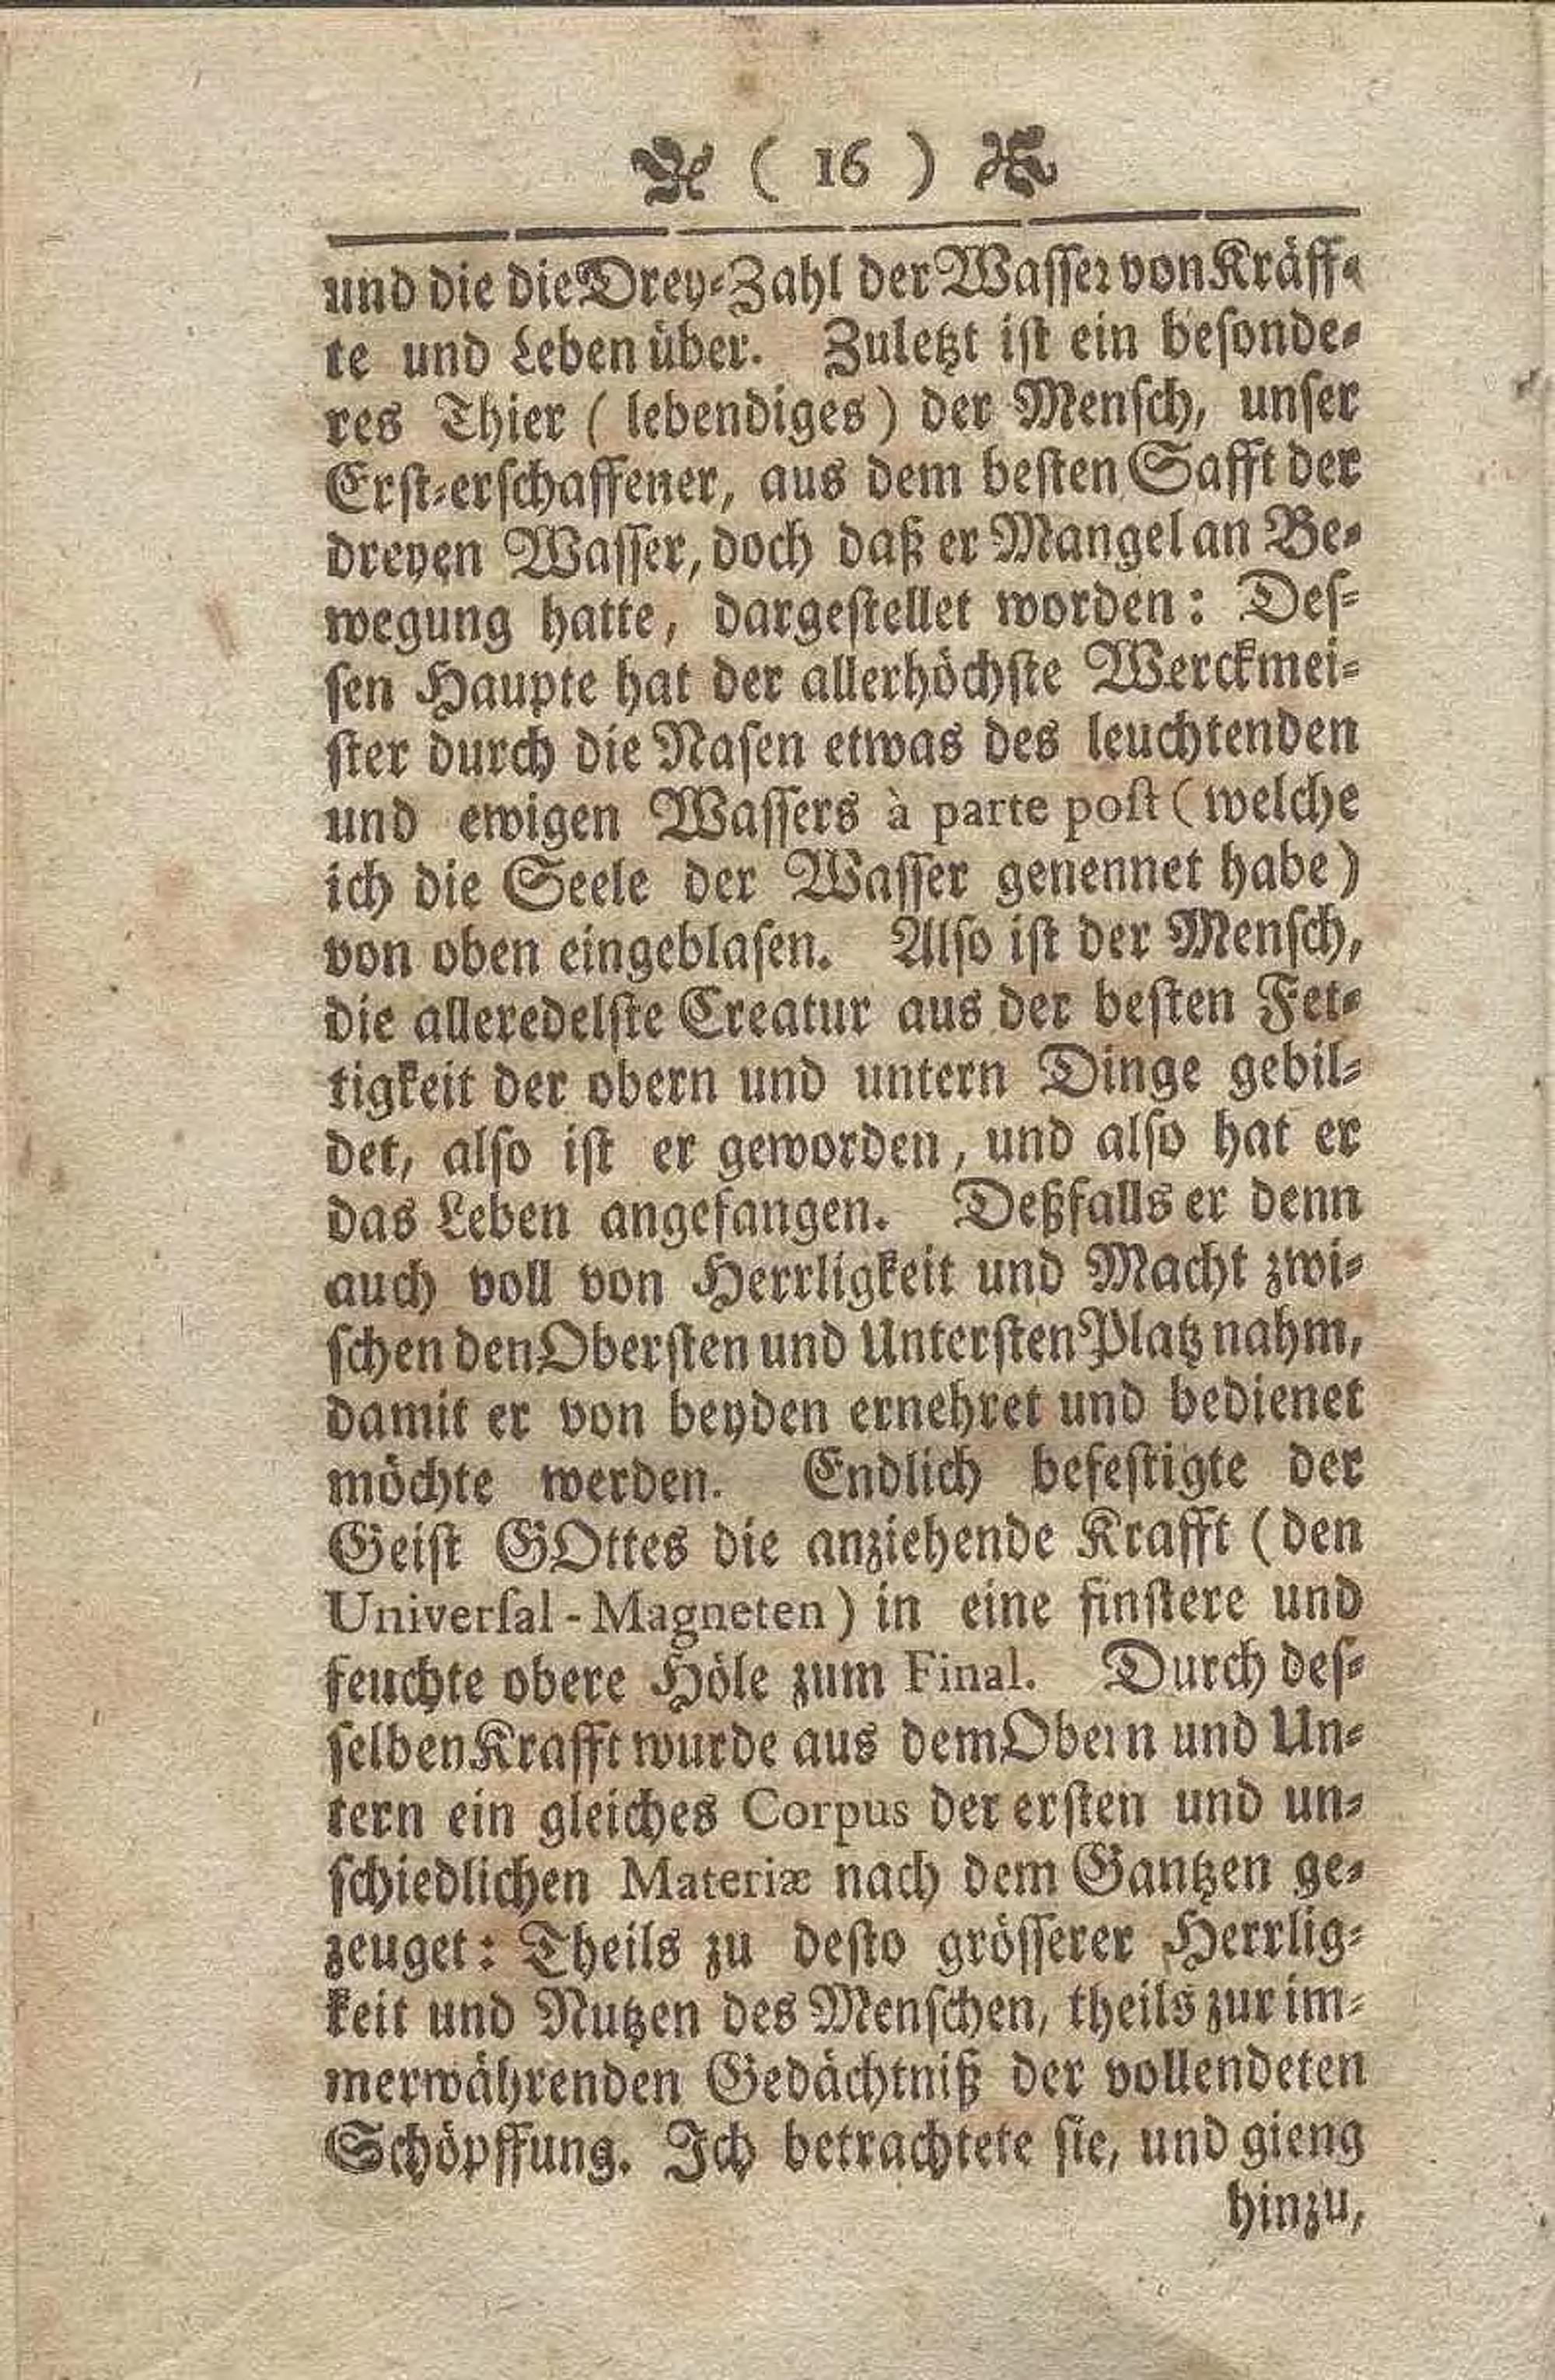 ( 16 )
und die die Drey-Zahl der Wasser von Kräff-
te und Leben über. Zuletzt ist ein besonde-
res Thier ( lebendiges ) der Mensch, unser
Erst-erschaffener, aus dem besten Safft der
dreyen Wasser, doch daß er Mangel an Be-
wegung hatte, dargestellet worden: Des-
sen Haupte hat der allerhöchste Werckmei-
ster durch die Nasen etwas des leuchtenden
und ewigen Wassers à parte post ( welche
ich die Seele der Wasser genennet habe )
von oben eingeblasen. Also ist der Mensch,
die alleredelste Creatur aus der besten Fet-
tigkeit der obern und untern Dinge gebil-
det, also ist er geworden, und also hat er
das Leben angefangen. Deßfalls er denn
auch voll von Herrligkeit und Macht zwi-
schen den Obersten und Untersten Platz nahm,
damit er von beyden ernehret und bedienet
möchte werden. Endlich befestigte der
Geist GOttes die anziehende Krafft ( den
Universal-Magneten ) in eine finstere und
feuchte obere Höle zum Final. Durch des-
selben Krafft wurde aus dem Obern und Un-
tern ein gleiches Corpus der ersten und un-
schiedlichen Materiæ nach dem Gantzen ge-
zeuget: Theils zu desto grösserer Herrlig-
keit und Nutzen des Menschen, theils zur im-
merwährenden Gedächtniß der vollendeten
Schöpffung. Ich betrachtete sie, und gieng
hinzu,